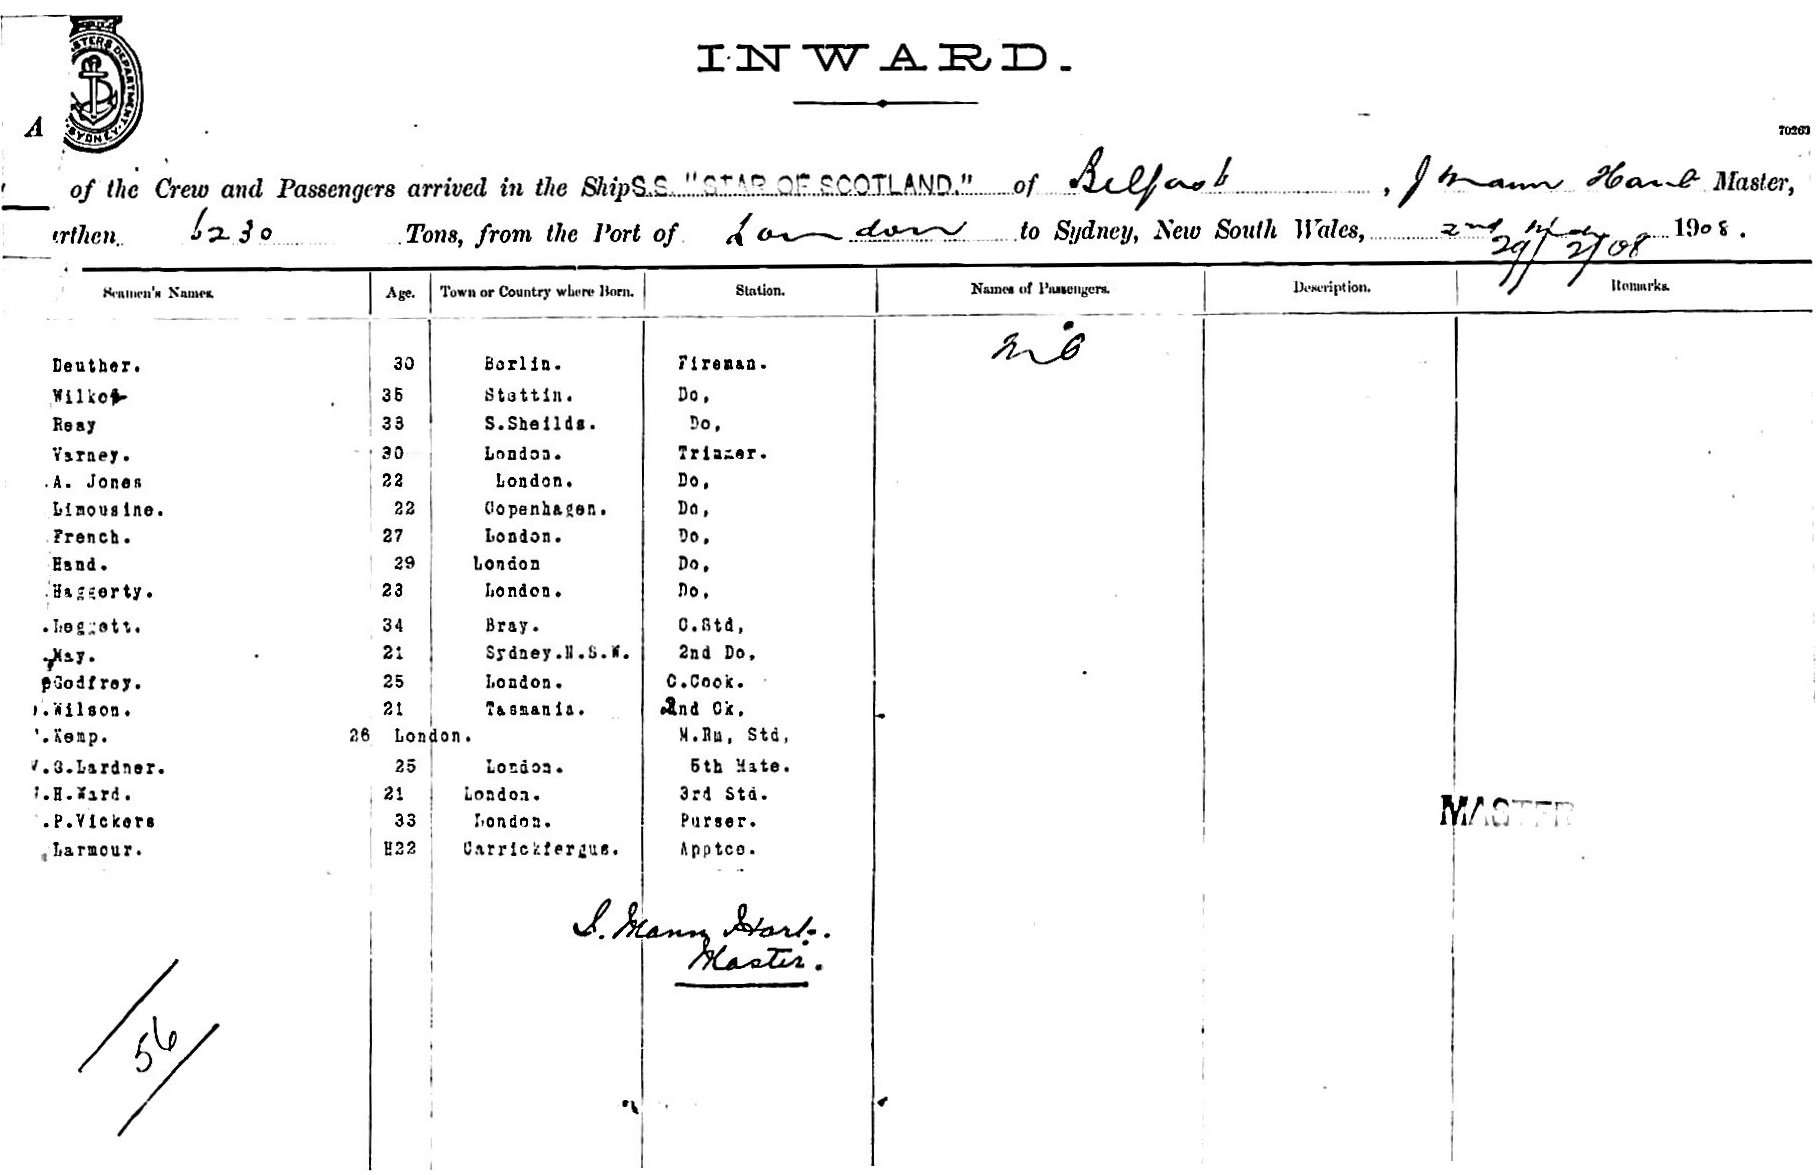 ASTERS DEPARTMENT. SYDNEY
INWARD.
A
70263
of the Crew and Passengers arrived in the Ship S.S. "STAR OF SCOTLAND." of Belfast, J Mann Hart Master,
rthen 6230 Tons, from the Port of London to Sydney, New South Wales, 2nd 1908.
29/2/08
Seamen's Names. Age. Town or Country where Born. Station. Names of Passengers. Description. Remarks.
Nil
Deuther. 30 Berlin. Fireman.
Wilko 35 Stettin. Do,
Reay 33 S.Sheilds. Do,
Varney. 30 London. Trimmer.
.A. Jones 22 London. Do,
Limousine. 22 Copenhagen. Do,
French. 27 London. Do,
Hand. 29 London Do,
Haggerty. 23 London. Do,
.Leggett. 34 Bray. C.Std,
.May. 21 Sydney.N.S.W. 2nd Do,
Godfrey. 25 London. C.Cook.
.Wilson. 21 Tasmania. 2nd Ck,
.Kemp. 26 London. M.Rm, Std,
.G.Lardner. 25 London. 5th Mate.
.H.Ward. 21 London. 3rd Std.
.P.Vickers 33 London. Purser.
Larmour. 22 Carrickfergus. Apptce.
MASTER
J. Mann Hart.
Master.
56